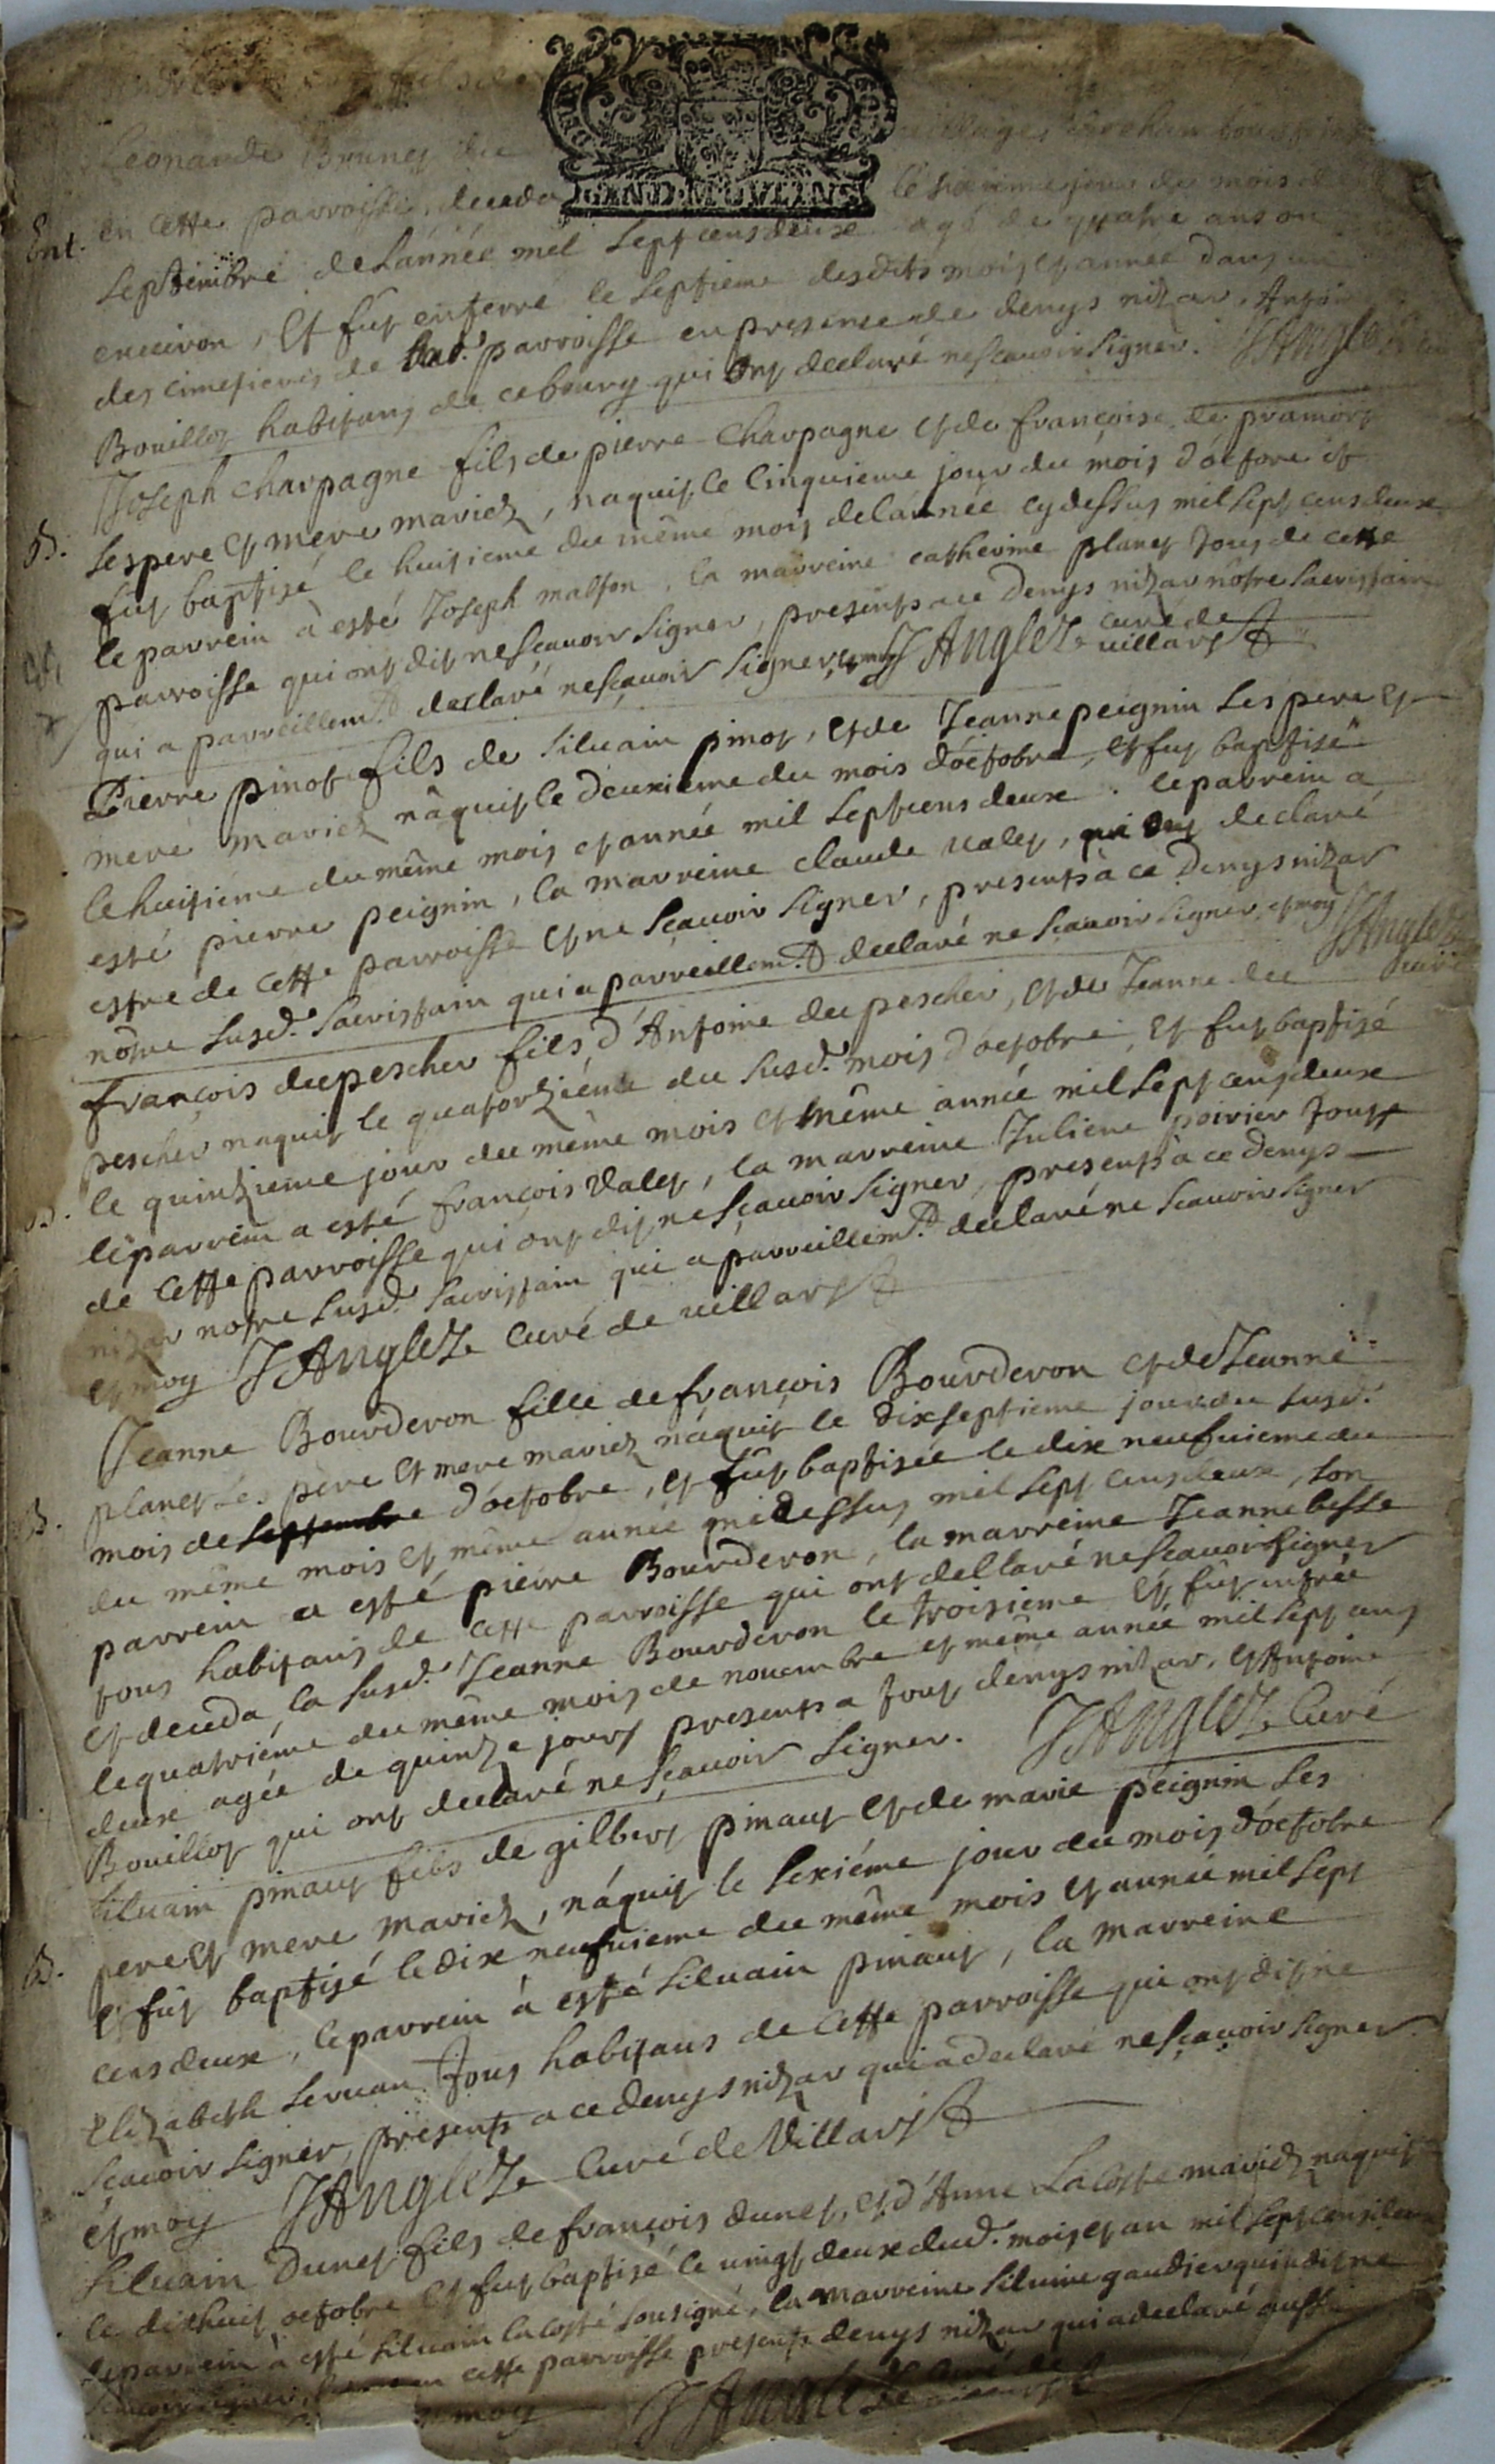 Leonarde Brunet du village
GEND·MOVLINS
Ent. en cette parroisse, deceda le sixieme jour du mois de
Septembre de l'année mil sept cens deux agé de quatre ans ou
environ, et fut enterré le septieme desdits mois et année dans un
des cimetieres de lad. parroisse en presence de denys nizar, Antoine
Bouillot habitans de ce bourg qui ont declaré ne scavoir signer. JAnglez
Joseph charpagne fils de pierre Charpagne et de françoise de pramort
B. ses pere et mere mariez, naquit le cinquieme jour du mois d'octore et
fut baptisé le huitieme du même mois de l'année cy dessus mil sept cens deux
le parrein à esté Joseph malton, la marreine catherine planet tous de cette
parroisse qui ont dit ne scavoir signer, presents a ce Denys nizar nôtre sacristain
qui a parreillemt. declaré ne sçavoir signer, et moy JAnglez curé de villars
Pierre pinot fils de Siluain pinot, et de Jeanne peignin ses pere et
mere mariez nâquit le deuxieme du mois d'octobre, et fut baptisé
le huitieme du même mois et année mil sept cens deux. le parrein a
esté pierre peignin, la marreine claude valet, qui ont declaré
estre de cette parroisse et ne sçavoir signer, presents à ce Denys nizar
nôtre susd. sacristain qui a parreillemt. declaré ne scavoir signer, et moy JAnglez curé
françois du pescher fils d'Antoine du pescher, et de Jeanne du
pescher naquit le quatorziéme du susd. mois d'octobre, et fut baptisé
le quinzieme jour du même mois et même année mil sept cens deux
B. le parrein a esté françois valet, la marreine Juliene poirier tous
de cette parroisse qui ont dit ne sçavoir signer, presents à ce denys
nizar notre susd. sacristain qui a parreillemt. declaré ne scavoir signer
et moy JAnglez curé de villars
Jeanne Bourderon fille de françois Bourderon et de Jeanne
planet ses pere et mere mariez nâquit le dixseptieme jour du susd.
B. mois de septembre d'octobre, et fut baptisée le dix neufuieme du
du même mois et même année que dessus mil sept cens deux, son
parrein a esté pierre Bourderon, la marreine Jeanne besse
tous habitans de cette parroisse qui ont declaré ne scavoir signer
et deceda la susd. Jeanne Bourderon le troisieme et fut entrée
le quatriéme du même mois de nouembre et même année mil sept cens
deux agée de quinze jours presents a tout denys nizar, et Antoine
Bouillot qui ont declaré ne sçavoir signer. JAnglez curé
Siluain pinaut fils de gilbert pinaut et de marie peignin ses
pere et mere mariez, náquit le sexiéme jour du mois d'octobre
B. et fut baptisé le dix neufuieme du même mois et année mil sept
cens deux, le parrein à esté Siluain pinaut, la marreine
Elizabeth seruan tous habitans de cette parroisse qui ont dit ne
sçavoir signer, presents a ce denys nizar qui a declaré ne sçavoir signer
et moy JAnglez curé de Villars
Siluain Dunet fils de françois dunet, et d'Anne Lacoste mariez naquit
le dixhuit octobre et fut baptisé le vingt deux dud. mois et an mil sept cens deux
le parrein à esté Siluain lacoste sousigné, la marreine Siluine gaudier qui a dit ne
scavoir signer, cette parroisse presents denys nizar qui a declaré aussi
et moy JAnglez curé de